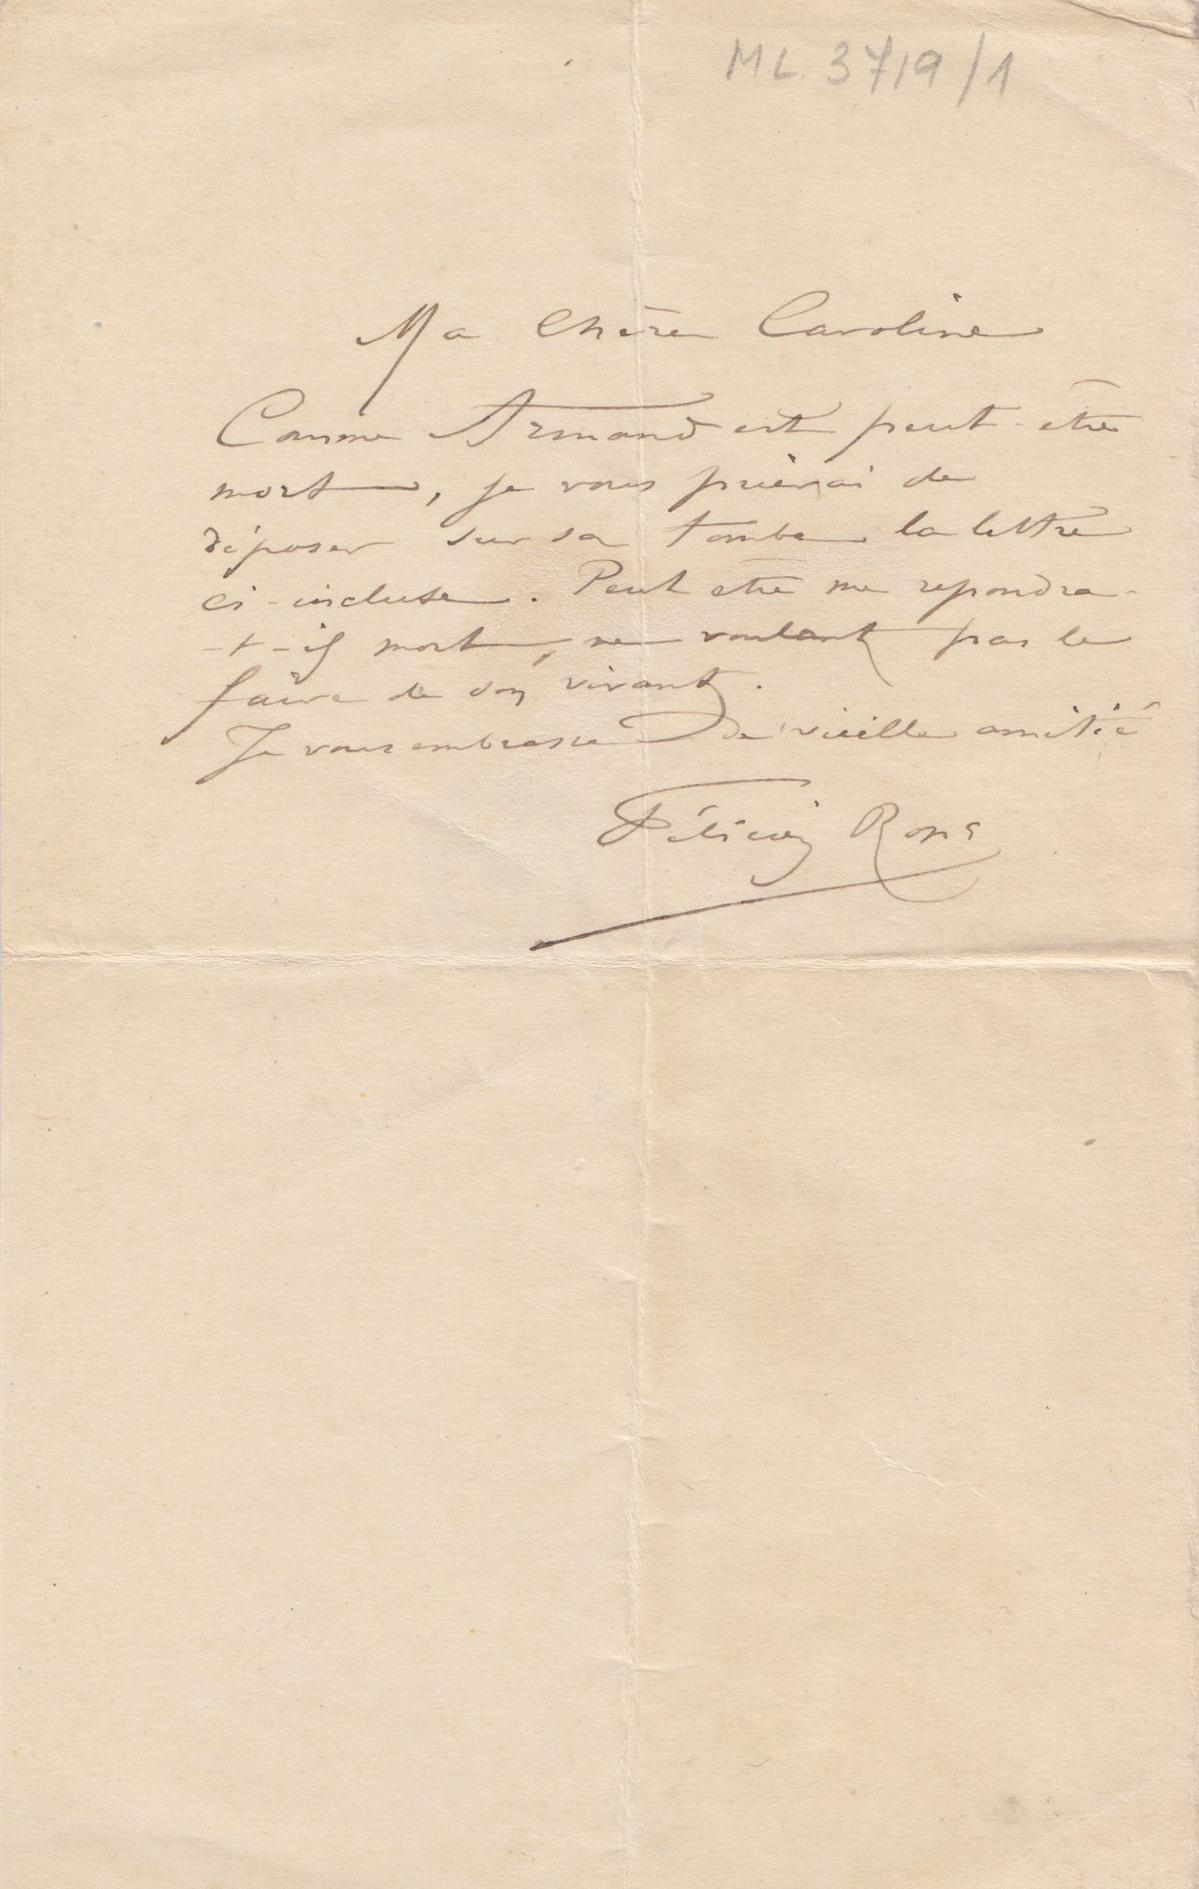 ML. 3719/1
Ma Chère Caroline
Comme Armand est peut-être
mort, je vous prierai de
déposer sur sa tombe la lettre
ci-incluse. Peut être me repondra-
-t-il mort, ne voulant pas le
faire de son vivant.
Je vous embrasse de vieille amitié
Félicien Rops